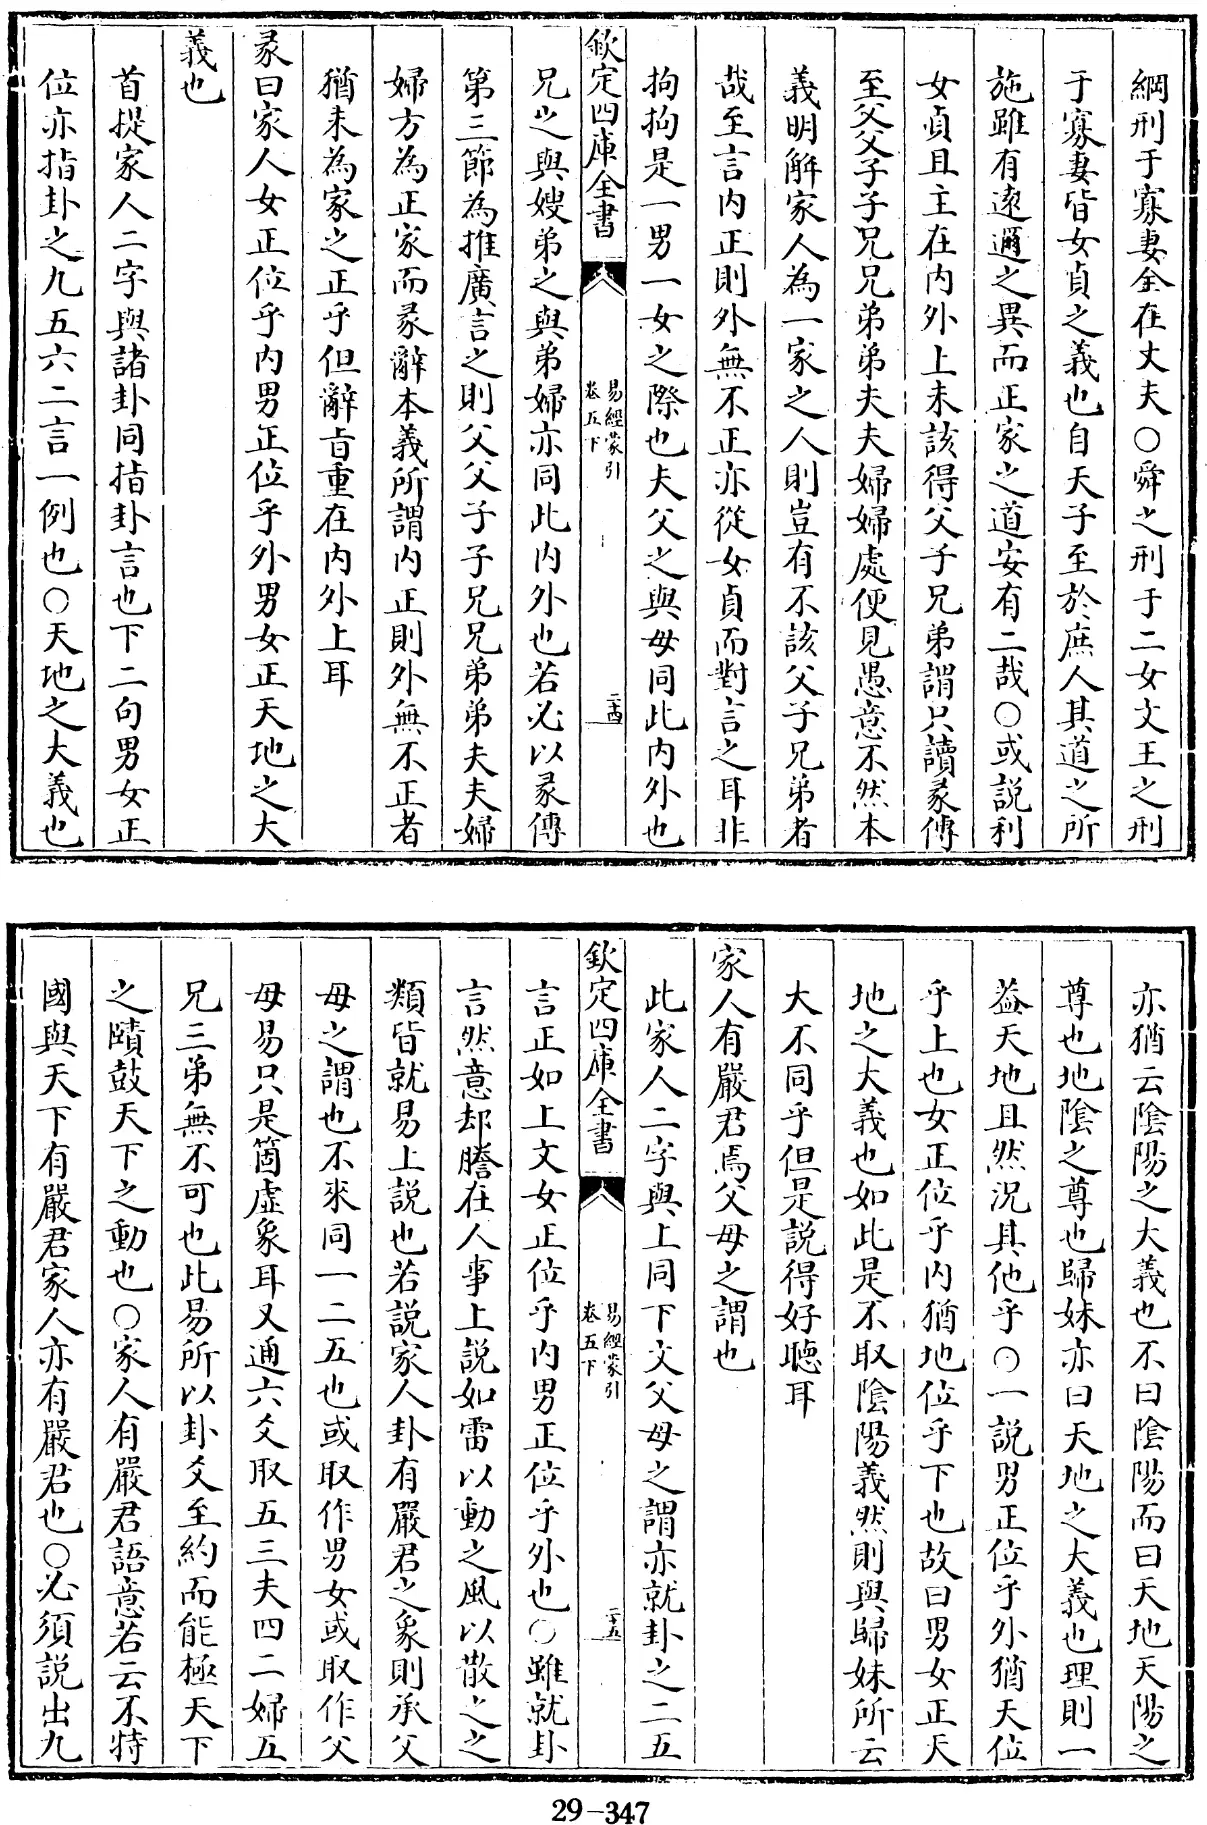 綱刑于寡妻全在丈夫○舜之刑于二女文王之刑
于寡妻皆女貞之義也自天子至於庶人其道之所
施雖有遠邇之異而正家之道安有二哉○或説利
女貞且主在内外上未該得父子兄弟謂只讀彖傳
至父父子子兄兄弟弟夫夫婦婦處便見愚意不然本
義明解家人為一家之人則豈有不該父子兄弟者
哉至言内正則外無不正亦從女貞而對言之耳非
拘拘是一男一女之際也夫父之與母同此内外也
欽定四庫全書
易經蒙引
卷五下
二十四
兄之與嫂弟之與弟婦亦同此内外也若必以彖傳
第三節為推廣言之則父父子子兄兄弟弟夫夫婦
婦方為正家而彖辭本義所謂内正則外無不正者
猶未為家之正乎但辭旨重在内外上耳
彖曰家人女正位乎内男正位乎外男女正天地之大
義也
首提家人二字與諸卦同指卦言也下二句男女正
位亦指卦之九五六二言一例也○天地之大義也
亦猶云陰陽之大義也不曰陰陽而曰天地天陽之
尊也地陰之尊也歸妹亦曰天地之大義也理則一
葢天地且然況其他乎○一説男正位乎外猶天位
乎上也女正位乎内猶地位乎下也故曰男女正天
地之大義也如此是不取陰陽義然則與歸妹所云
大不同乎但是説得好聽耳
家人有嚴君焉父母之謂也
此家人二字與上同下文父母之謂亦就卦之二五
欽定四庫全書
易經蒙引
卷五下
二十五
言正如上文女正位乎内男正位乎外也○雖就卦
言然意却謄在人事上説如雷以動之風以散之之
類皆就易上説也若説家人卦有嚴君之象則承父
母之謂也不來同一二五也或取作男女或取作父
母易只是箇虛象耳又通六爻取五三夫四二婦五
兄三弟無不可也此易所以卦爻至約而能極天下
之賾鼓天下之動也○家人有嚴君語意若云不特
國與天下有嚴君家人亦有嚴君也○必須説出九
29-347